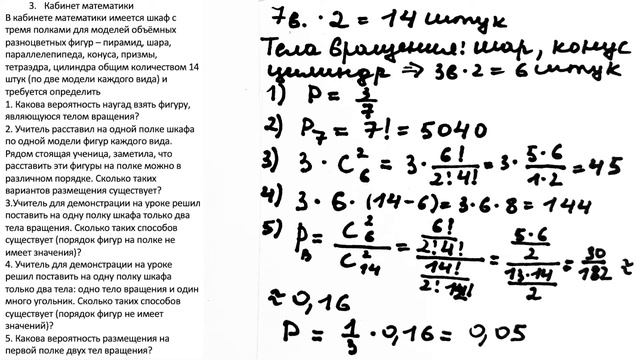 3. Кабинет математики
В кабинете математики имеется шкаф с
тремя полками для моделей объёмных
разноцветных фигур – пирамид, шара,
параллелепипеда, конуса, призмы,
тетраэдра, цилиндра общим количеством 14
штук (по две модели каждого вида) и
требуется определить
1. Какова вероятность наугад взять фигуру,
являющуюся телом вращения?
2. Учитель расставил на одной полке шкафа
по одной модели фигур каждого вида.
Рядом стоящая ученица, заметила, что
расставить эти фигуры на полке можно в
различном порядке. Сколько таких
вариантов размещения существует?
3.Учитель для демонстрации на уроке решил
поставить на одну полку шкафа только два
тела вращения. Сколько таких способов
существует (порядок фигур на полке не
имеет значения)?
4. Учитель для демонстрации на уроке
решил поставить на одну полку шкафа
только два тела: одно тело вращения и один
много угольник. Сколько таких способов
существует (порядок фигур не имеет
значений)?
5. Какова вероятность размещения на
первой полке двух тел вращения?
7в. · 2 = 14 штук
Тела вращения: шар, конус
цилиндр ⇒ 3в · 2 = 6 штук
1) P = 3/7
2) P₇ = 7! = 5040
3) 3 · C₆² = 3 · 6!/2!4! = 3 · 5·6/1·2 = 45
4) 3 · 6 · (14-6) = 3·6·8 = 144
5) Pв = C₆²/C₁₄² = (6!/2!4!)/(14!/2!12!) = (5·6/2)/(13·14/2) = 30/182 ≈
≈ 0,16
P = 1/3 · 0,16 = 0,05